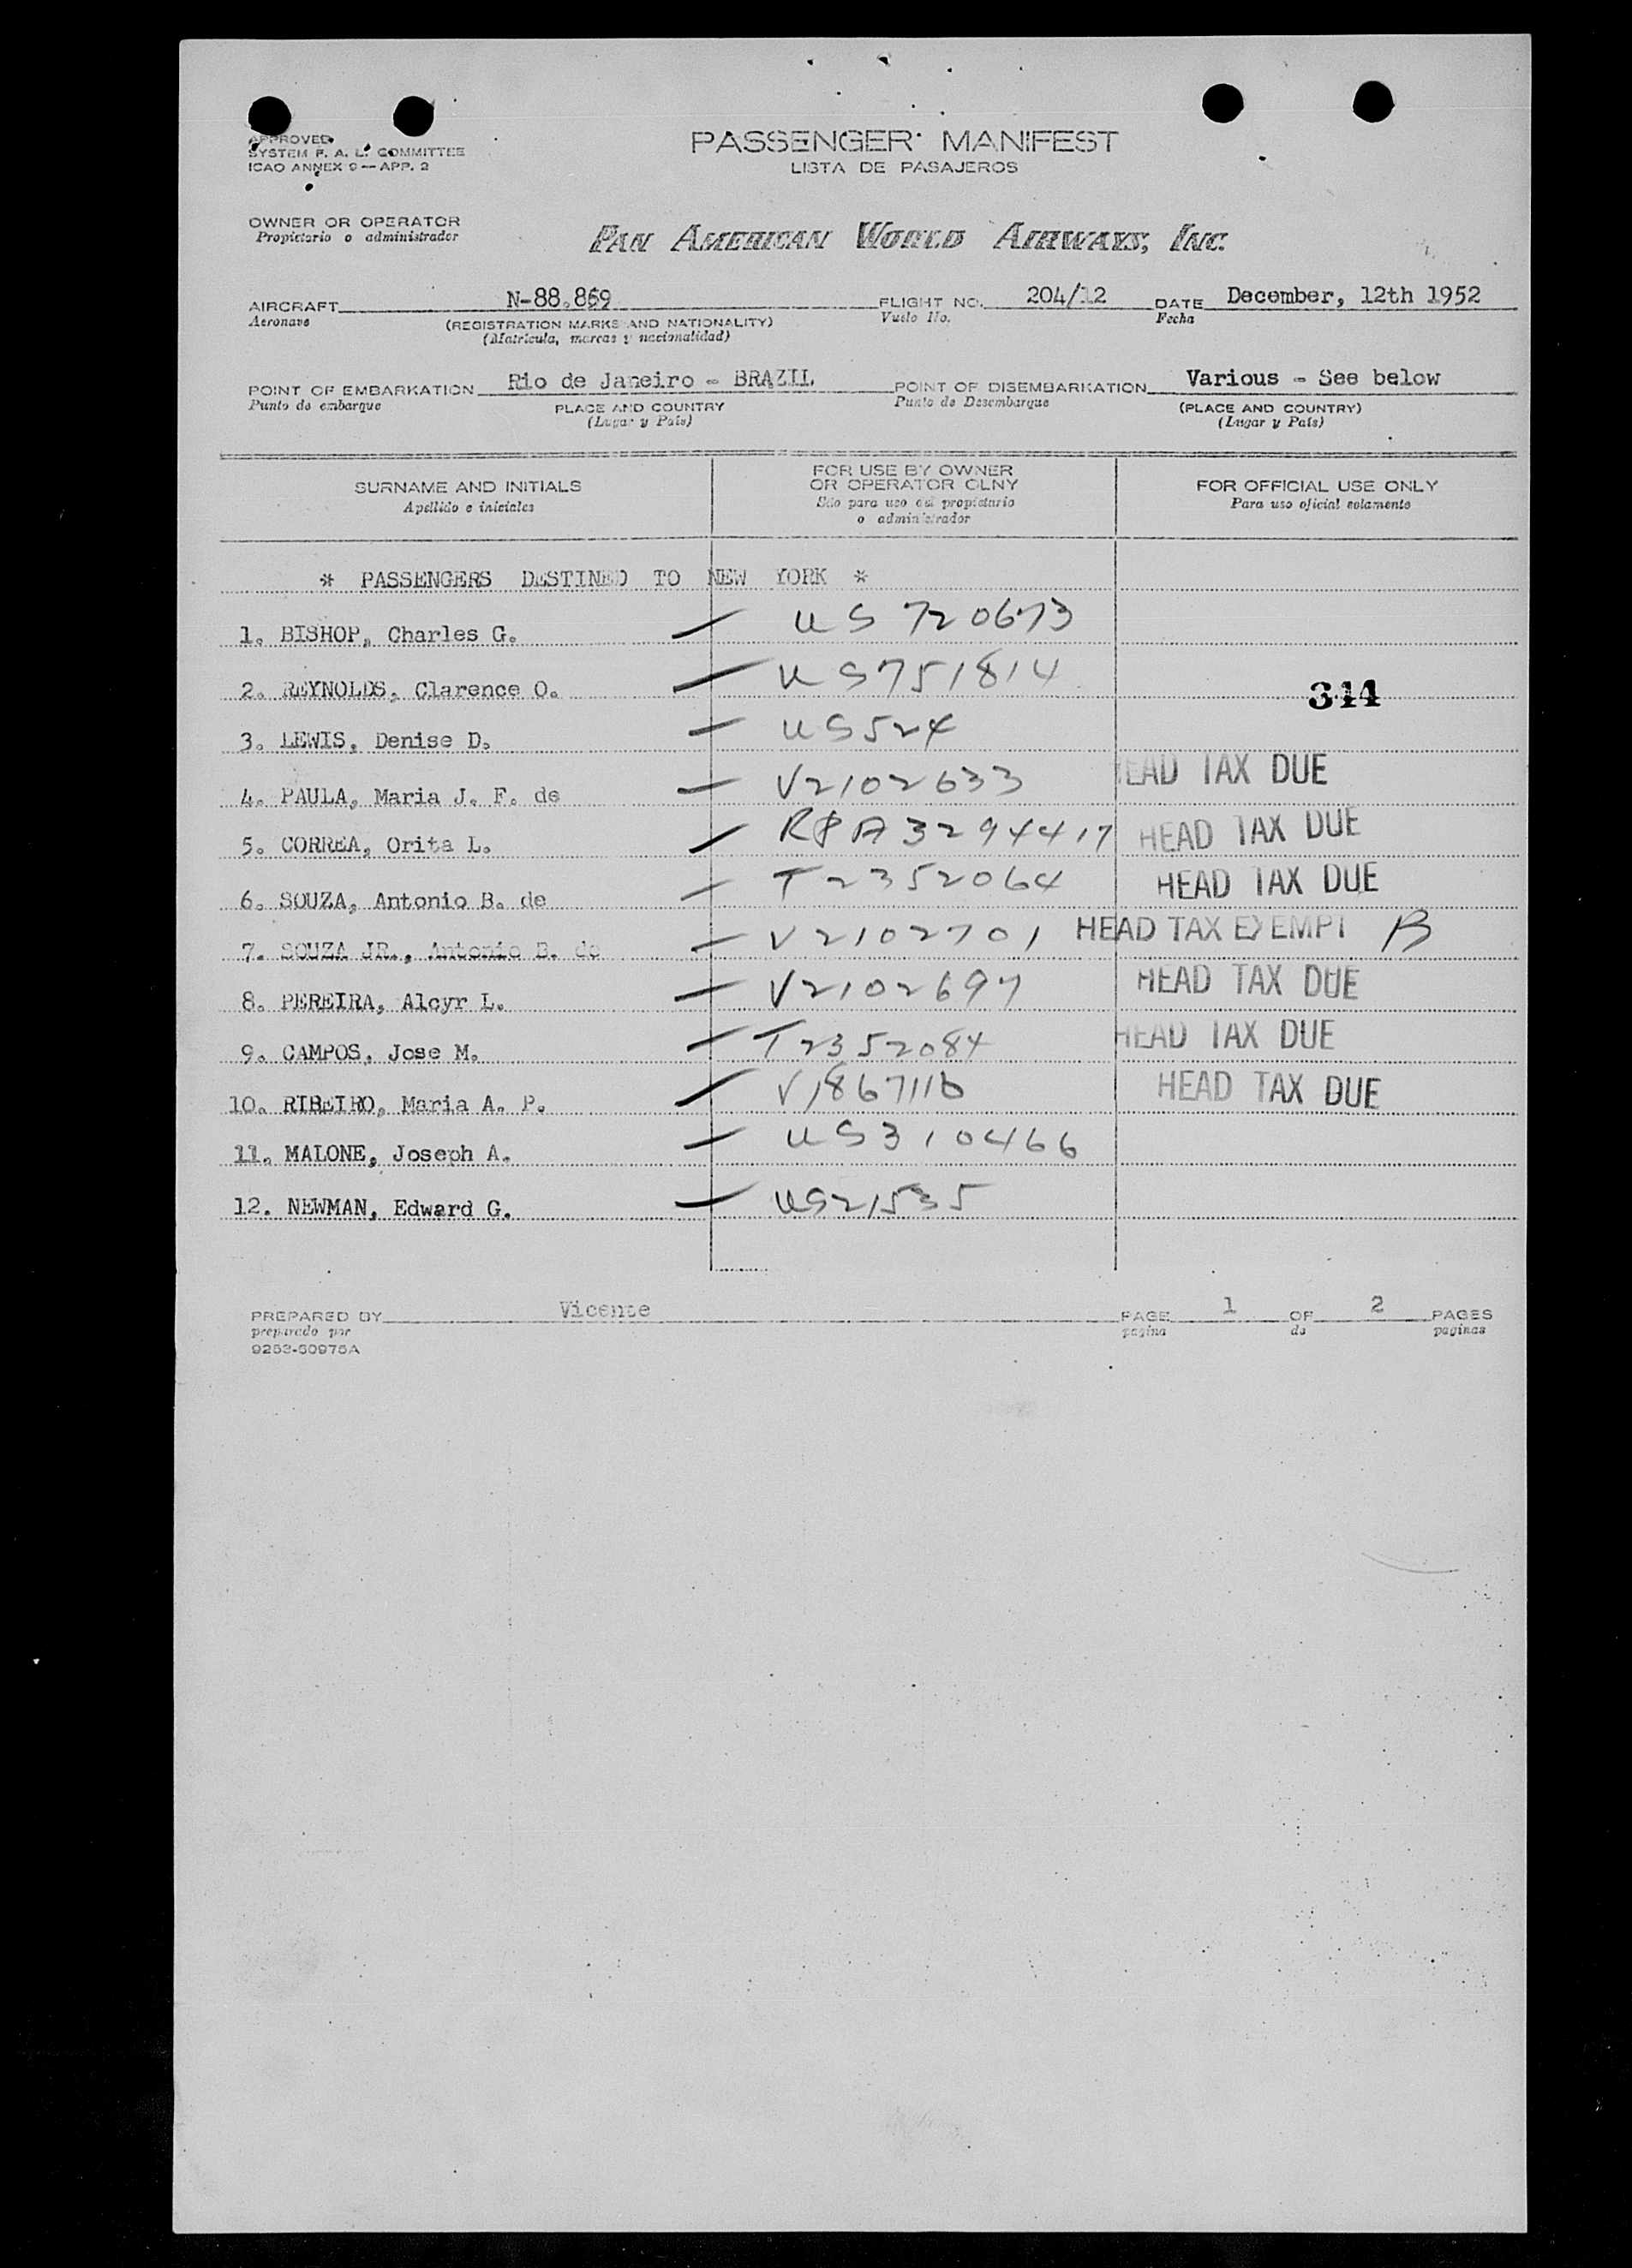 APPROVED
SYSTEM F. A. L. COMMITTEE
ICAO ANNEX 9 — APP. 2
PASSENGER MANIFEST
LISTA DE PASAJEROS
OWNER OR OPERATOR
Propietario o administrador
PAN AMERICAN WORLD AIRWAYS, INC.
AIRCRAFT N-88.869 FLIGHT NO. 204/12 DATE December, 12th 1952
Aeronave (REGISTRATION MARKS AND NATIONALITY) Vuelo No. Fecha
(Matricula, marcas y nacionalidad)
POINT OF EMBARKATION Rio de Janeiro - BRAZIL POINT OF DISEMBARKATION Various - See below
Punto de embarque PLACE AND COUNTRY Punto de Desembarque (PLACE AND COUNTRY)
(Lugar y País) (Lugar y País)
SURNAME AND INITIALS
Apellido e iniciales
FOR USE BY OWNER
OR OPERATOR OLNY
Sólo para uso del propietario
o administrador
FOR OFFICIAL USE ONLY
Para uso oficial solamente
* PASSENGERS DESTINED TO NEW YORK *
1. BISHOP, Charles G. — US 720673
2. REYNOLDS, Clarence O. — US751814 344
3. LEWIS, Denise D. — US524
4. PAULA, Maria J. F. de — V2102633 HEAD TAX DUE
5. CORREA, Orita L. — A3294417 HEAD TAX DUE
6. SOUZA, Antonio B. de — T2352064 HEAD TAX DUE
7. SOUZA JR., Antonio B. de — V2102701 HEAD TAX EXEMPT B
8. PEREIRA, Alcyr L. — V2102697 HEAD TAX DUE
9. CAMPOS, Jose M. — T2352084 HEAD TAX DUE
10. RIBEIRO, Maria A. P. — HEAD TAX DUE
11. MALONE, Joseph A. — US310466
12. NEWMAN, Edward G. — US21535
PREPARED BY Vicente PAGE 1 OF 2 PAGES
preparado por pagina de paginas
9253-50975A